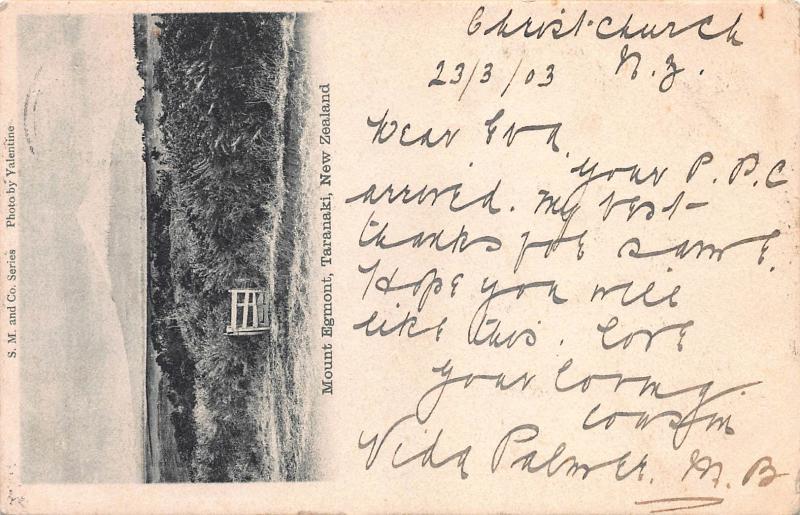 Christchurch
N.Z.
23/3/03
Dear Eva,
your P.P.C
arrived. My best
thanks for same.
Hope you will
like this. Love
your loving
cousin
Vida Palmer. M.B
Mount Egmont, Taranaki, New Zealand
S. M. and Co. Series Photo by Valentine